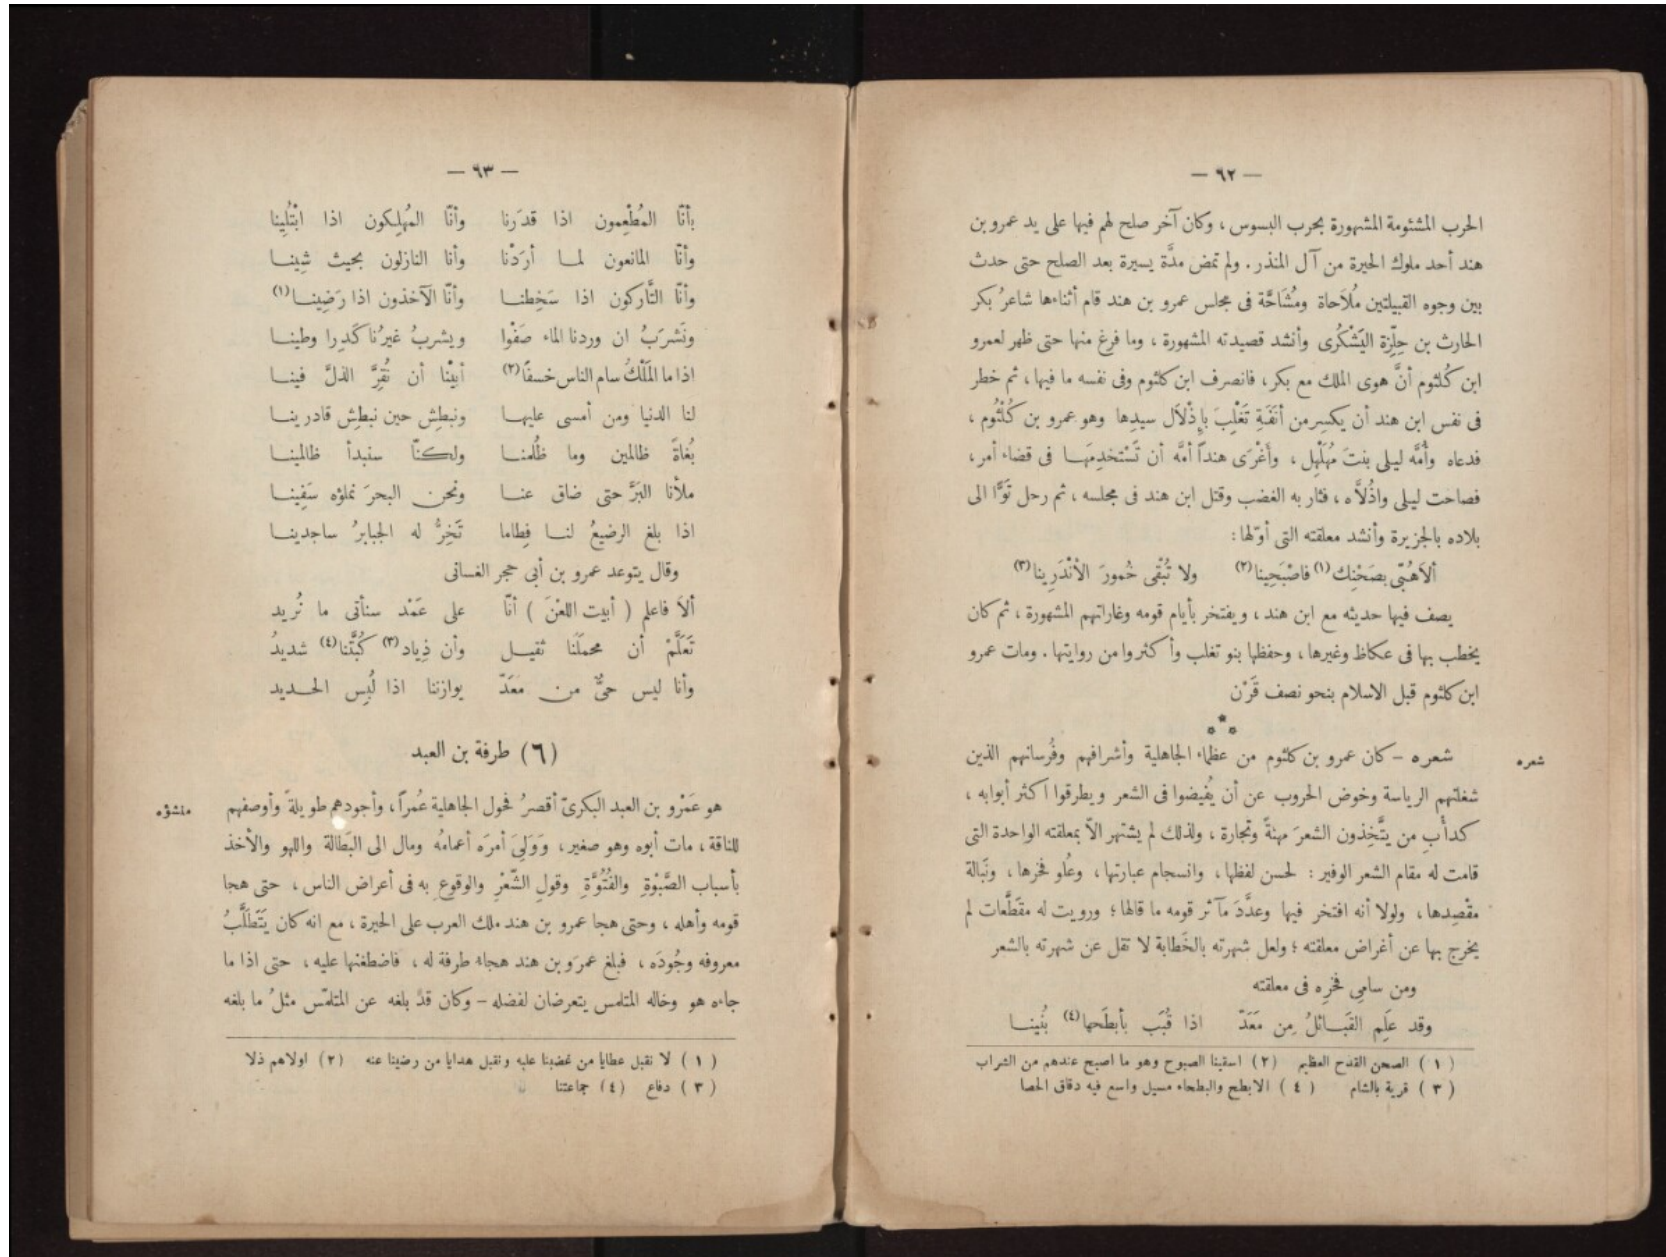 — ٦٢ —
الحرب المشئومة المشهورة بحرب البسوس ، وكان آخر صلح لهم فيها على يد عمرو بن
هند أحد ملوك الحيرة من آل المنذر . ولم تمض مدَّة يسيرة بعد الصلح حتى حدث
بين وجوه القبيلتين مُلاَحاة ومُشَاحَّة فى مجلس عمرو بن هند قام أثناءها شاعرُ بكر
الحارث بن حِلِّزة اليَشْكُرى وأنشد قصيدته المشهورة ، وما فرغ منها حتى ظهر لعمرو
ابن كُلثوم أنَّ هوى الملك مع بكر، فانصرف ابن كلثوم وفى نفسه ما فيها ، ثم خطر
فى نفس ابن هند أن يكسِر من أنَفَةِ تَغْلِبَ بإِذْلاَل سيدِها وهو عمرو بن كُلْثُوم ،
فدعاه وأُمَّه ليلى بنتَ مُهَلْهِل ، وأَغْرَى هنداً أمَّه أن تَسْتخدِمَهَـا فى قضاء أمر،
فصاحت ليلى واذُلاَّه ، فثار به الغضب وقتل ابن هند فى مجلسه ، ثم رحل توًّا الى
بلاده بالجزيرة وأنشد معلقته التى أوّلها :
ألاَ هُبّى بصَحْنِك (١) فاصْبَحِينا (٢) ولا تُبْقى خُمورَ الأنْدَرِينا (٣)
يصف فيها حديثه مع ابن هند ، ويفتخر بأيام قومه وغاراتهم المشهورة ، ثم كان
يخطب بها فى عكاظ وغيرها ، وحفظها بنو تغلب وأكثروا من روايتها . ومات عمرو
ابن كلثوم قبل الاسلام بنحو نصف قَرْن
* * *
شعره
شعره – كان عمرو بن كلثوم من عظماء الجاهلية وأشرافهم وفُرسانهم الذين
شغلتهم الرياسة وخوض الحروب عن أن يُفيضوا فى الشعر ويطرقوا أكثر أبوابه ،
كدأْبِ من يتَّخِذون الشعرَ مهنةً وتجارة ، ولذلك لم يشتهر الاّ بمعلقته الواحدة التى
قامت له مقام الشعر الوفير : لحسن لفظها ، وانسجام عبارتها ، وعُلو فخرها ، ونَبالة
مقْصِدها ، ولولا أنه افتخر فيها وعدَّدَ مآثر قومه ما قالها ؛ ورويت له مقَطَّعات لم
يخرج بها عن أغراض معلقته ؛ ولعل شهرته بالخَطابة لا تقل عن شهرته بالشعر
ومن سامِى فخره فى معلقته
وقد علِم القَبـائلُ مِن مَعَدّ اذا قُبَب بأبطَحها (٤) بُنِينـا
( ١ ) الصحن القدح العظيم (٢) اسقينا الصبوح وهو ما اصبح عندهم من الشراب
( ٣ ) قرية بالشام ( ٤ ) الابطح والبطحاء مسيل واسع فيه دقاق الحصا
— ٦٣ —
بأنّا المُطْعِمون اذا قدَرنا وأنّا المُهلِكون اذا ابْتُلِينا
وأنّا المانعون لمـا أرَدْنا وأنا النازلون بحيث شِينـا
وأنّا التَّاركون اذا سَخِطنـا وأنّا الآخذون اذا رَضِينـا (١)
ونَشرَبُ ان وردنا الماء صَفْوا ويشربُ غيرُنا كَدِرا وطينـا
اذا ما المَلْكُ سام الناس خسفًا (٢) أبيْنا أن نُقِرَّ الذلَّ فينـا
لنا الدنيا ومن أمسى عليهـا ونبطِش حين نبطِش قادرينا
بُغاةً ظالمين وما ظُلمنـا ولكنّا سنبدأ ظالمينـا
ملأنا البَرَّ حتى ضاق عنـا ونحن البحرَ نملؤه سَفِينـا
اذا بلغ الرضيعُ لنـا فِطاما تَخِرُّ له الجبابرُ ساجدينـا
وقال يتوعد عمرو بن أبى حجر الغسانى
ألاَ فاعلم ( أبيت اللعْنَ ) أنّا على عَمْد سنأتى ما نُريد
تَعَلَّمْ أن محملَنا ثقيـل وأن ذِياد (٣) كُبَّتنا (٤) شديدُ
وأنا ليس حىٌّ من مَعَدّ يوازننا اذا لُبِس الحـديد
(٦) طرفة بن العبد
منشؤه
هو عَمْرو بن العبد البكرىّ أقصرُ فحول الجاهلية عُمراً ، وأجودهم طويلةً وأوصفهم
للناقة ، مات أبوه وهو صغير ، وَوَلِىَ أمرَه أعمامُه ومال الى البَطالة واللهو والأخذ
بأسباب الصَّبْوةِ والفُتُوَّةِ وقولِ الشّعْرِ والوقوع به فى أعراض الناس ، حتى هجا
قومه وأهله ، وحتى هجا عمرو بن هند ملك العرب على الحيرة ، مع انه كان يَتَطَلَّبُ
معروفه وجُودَه ، فبلغ عمرَو بن هند هجاء طرفة له ، فاضطغنها عليه ، حتى اذا ما
جاءه هو وخاله المتلمس يتعرضان لفضله – وكان قد بلغه عن المتلمّس مثلُ ما بلغه
( ١ ) لا نقبل عطايا من غضبنا عليه ونقبل هدايا من رضينا عنه (٢) اولاهم ذلا
( ٣ ) دفاع (٤) جماعتنا